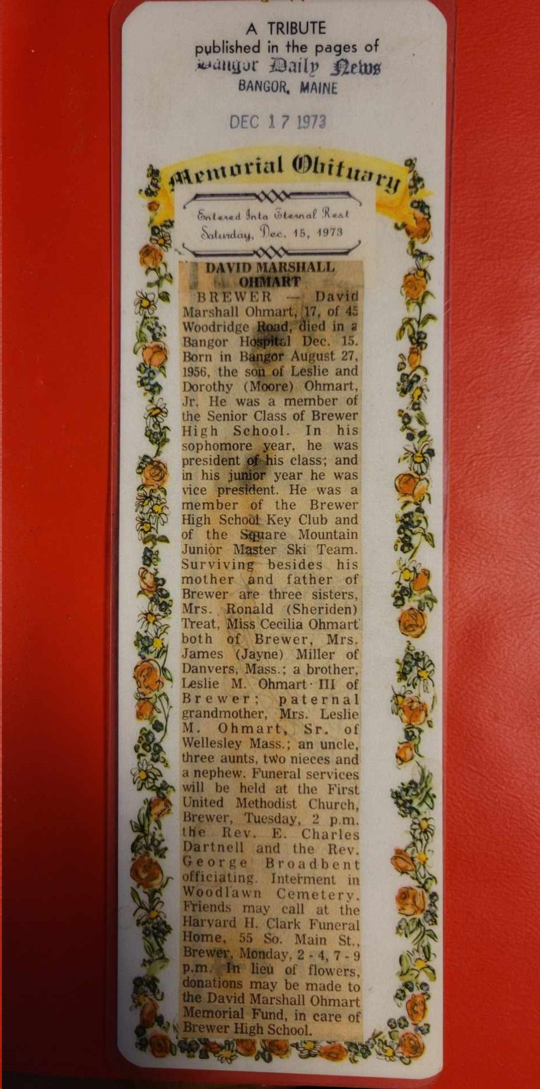 A TRIBUTE
published in the pages of
Bangor Daily News
BANGOR, MAINE
DEC 17 1973
Memorial Obituary
Entered Into Eternal Rest
Saturday, Dec. 15, 1973
DAVID MARSHALL
OHMART
BREWER — David
Marshall Ohmart, 17, of 45
Woodridge Road, died in a
Bangor Hospital Dec. 15.
Born in Bangor August 27,
1956, the son of Leslie and
Dorothy (Moore) Ohmart,
Jr. He was a member of
the Senior Class of Brewer
High School. In his
sophomore year, he was
president of his class; and
in his junior year he was
vice president. He was a
member of the Brewer
High School Key Club and
of the Square Mountain
Junior Master Ski Team.
Surviving besides his
mother and father of
Brewer are three sisters,
Mrs. Ronald (Sheriden)
Treat, Miss Cecilia Ohmart
both of Brewer, Mrs.
James (Jayne) Miller of
Danvers, Mass.; a brother,
Leslie M. Ohmart III of
Brewer; paternal
grandmother, Mrs. Leslie
M. Ohmart, Sr. of
Wellesley Mass.; an uncle,
three aunts, two nieces and
a nephew. Funeral services
will be held at the First
United Methodist Church,
Brewer, Tuesday, 2 p.m.
the Rev. E. Charles
Dartnell and the Rev.
George Broadbent
officiating. Interment in
Woodlawn Cemetery.
Friends may call at the
Harvard H. Clark Funeral
Home, 55 So. Main St.,
Brewer, Monday, 2 - 4, 7 - 9
p.m. In lieu of flowers,
donations may be made to
the David Marshall Ohmart
Memorial Fund, in care of
Brewer High School.